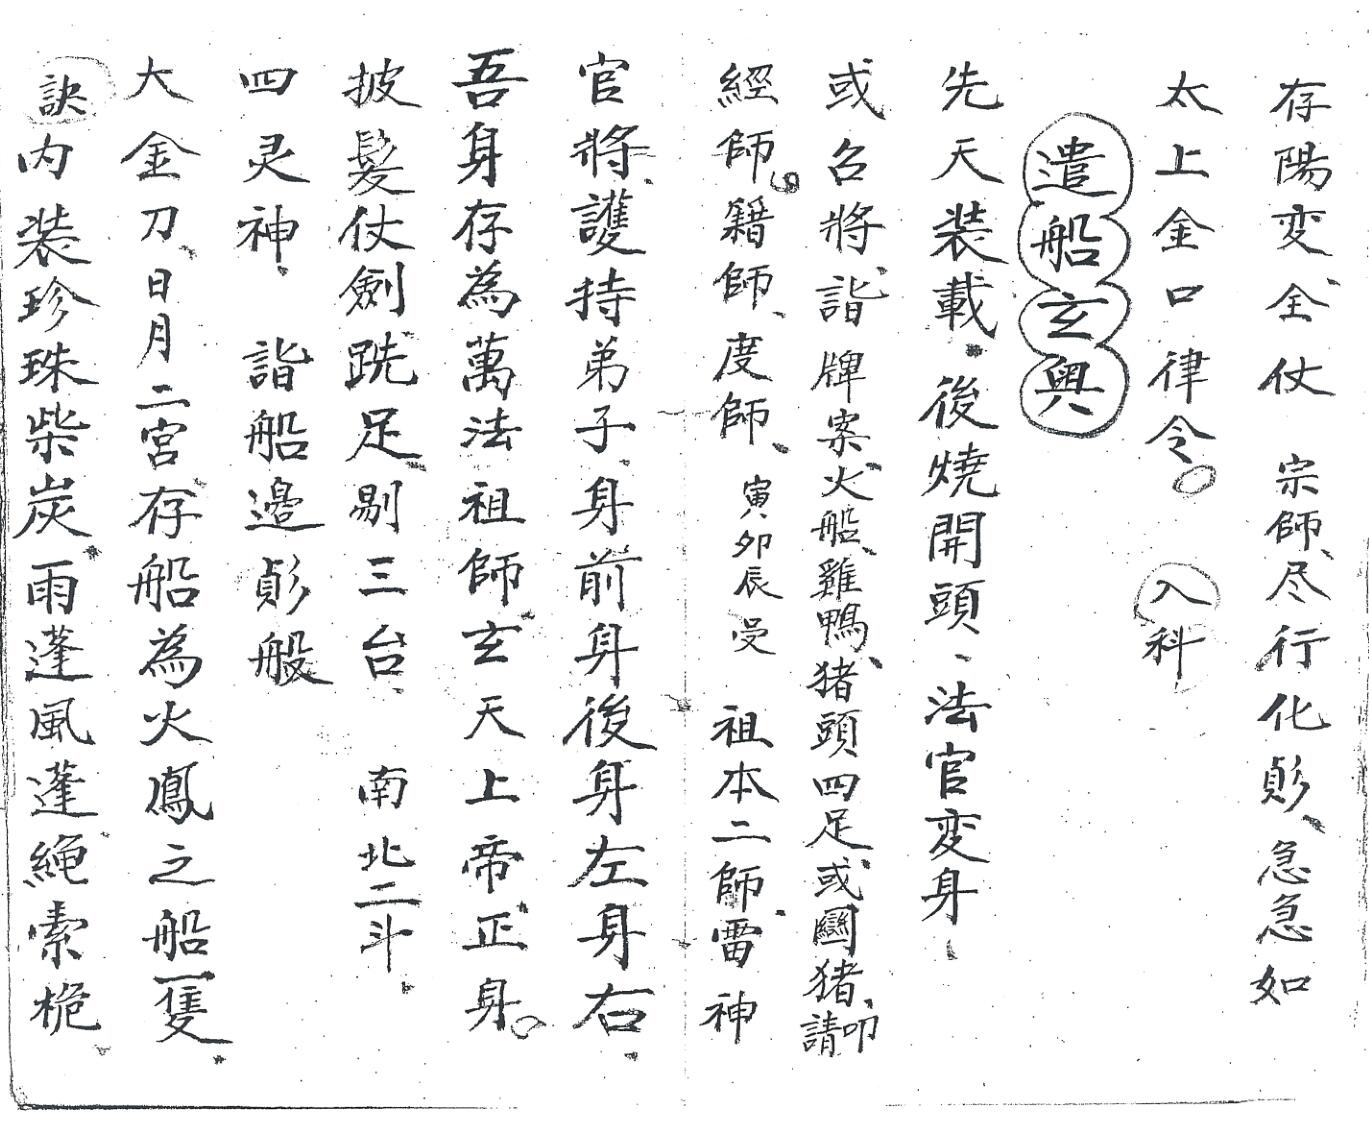 存陽変全仗 宗師、尽行化彭、急急如
太上金口律令。 入科
遣船玄奥
先天装載、後燒開頭、法官変身、
或召將、詣牌案火船、雞鴨、猪頭四足或圞猪、請叩
經師、籍師、度師、寅卯辰受 祖本二師、雷神
官將、護持弟子、身前身後身左身右、
吾身存為萬法祖師、玄天上帝正身。
披髮仗劍跣足、剔三台、 南北二斗、
四灵神、 詣船邉彭般
大金刀、日月二宮、存船為火鳳之船一隻、
訣內装珍珠柴炭、雨蓬風蓬繩索桅、